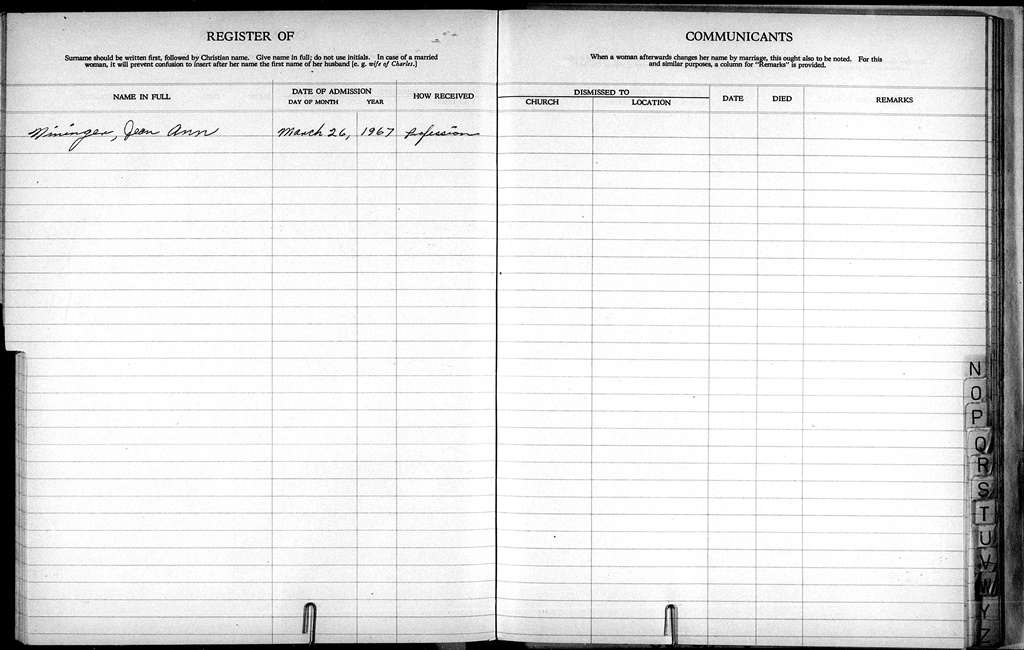 REGISTER OF
Surname should be written first, followed by Christian name. Give name in full; do not use initials. In case of a married
woman, it will prevent confusion to insert after her name the first name of her husband [e. g. wife of Charles.]
NAME IN FULL
DATE OF ADMISSION
DAY OF MONTH YEAR
HOW RECEIVED
Mininger, Jean Ann March 26, 1967 Profession
COMMUNICANTS
When a woman afterwards changes her name by marriage, this ought also to be noted. For this
and similar purposes, a column for "Remarks" is provided.
DISMISSED TO
CHURCH LOCATION
DATE
DIED
REMARKS
N
O
P
Q
R
S
T
U
V
W
Y
Z